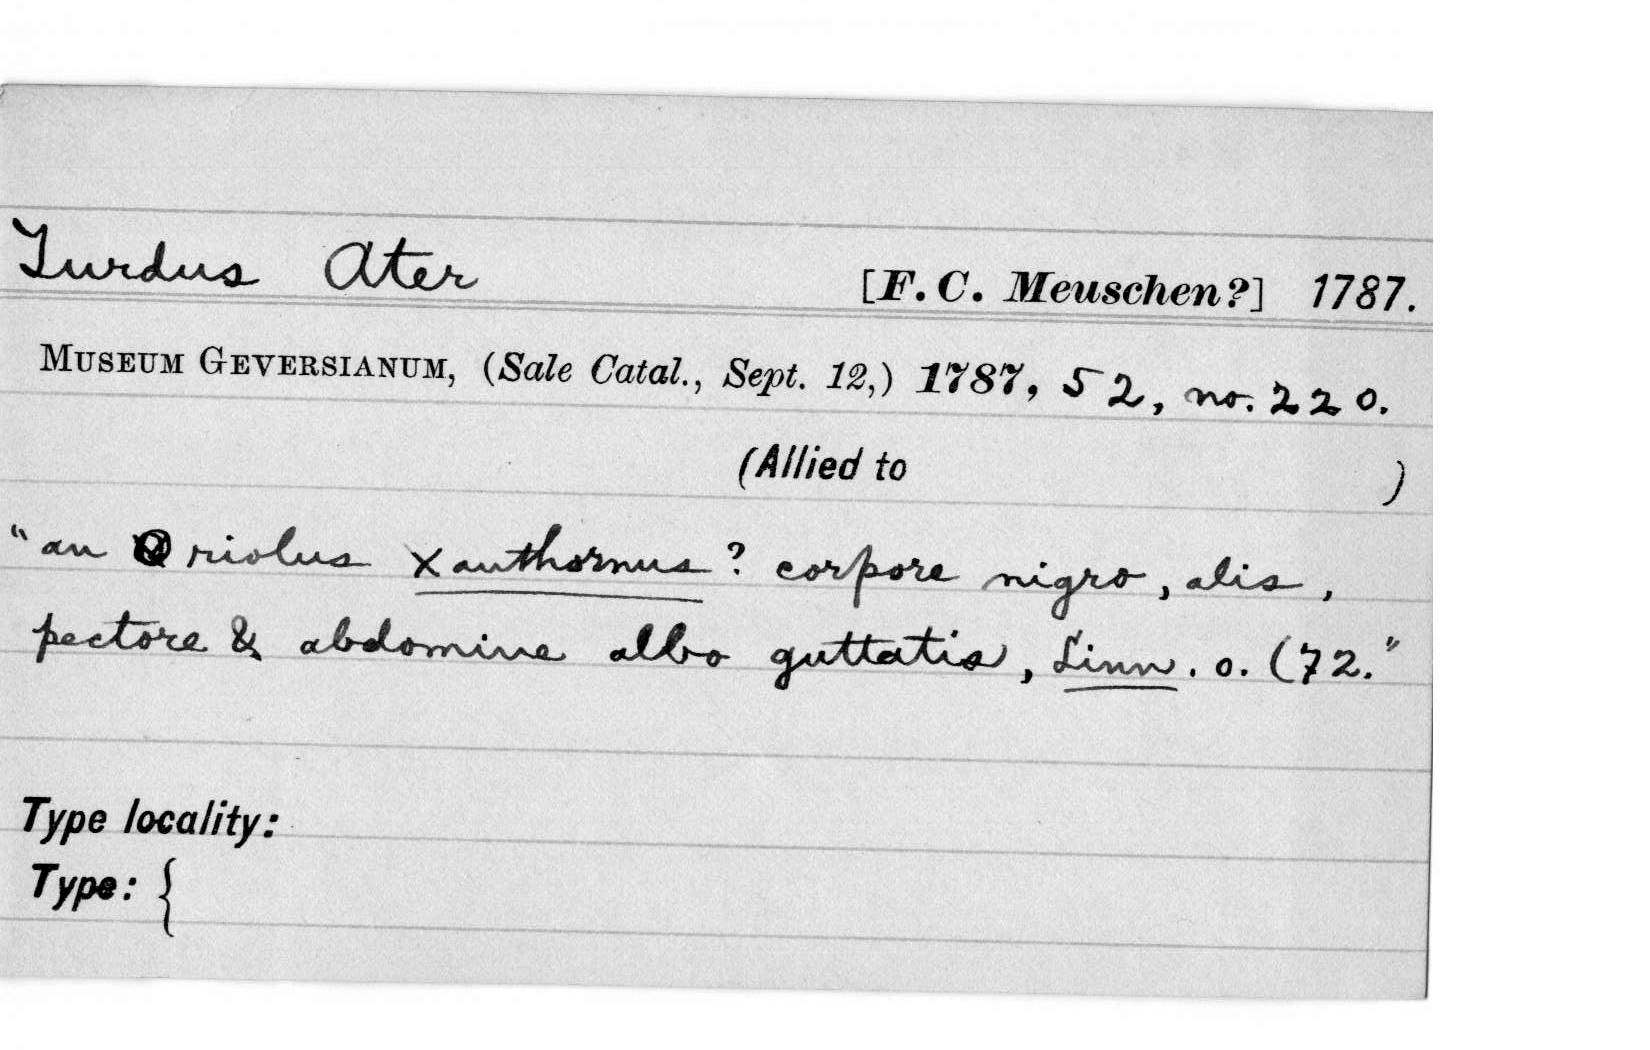 Turdus Ater [F. C. Meuschen?] 1787.
MUSEUM GEVERSIANUM, (Sale Catal., Sept. 12,) 1787, 52, no. 220.
(Allied to )
"an Oriolus Xanthornus? corpore nigro, alis,
pectore & abdomine albo guttatis, Linn. o. (72."
Type locality:
Type: {